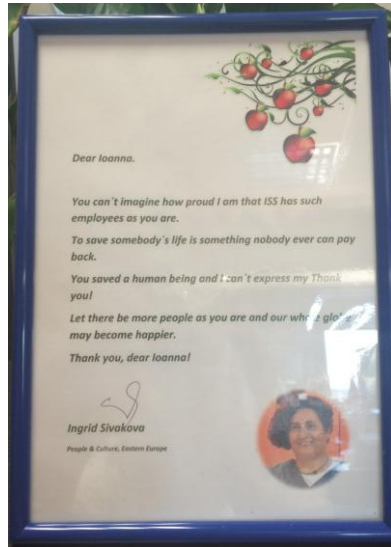 Dear Ioanna.
You can´t imagine how proud I am that ISS has such
employees as you are.
To save somebody´s life is something nobody ever can pay
back.
You saved a human being and I can´t express my Thank
you!
Let there be more people as you are and our whole globe
may become happier.
Thank you, dear Ioanna!
Ingrid Sivakova
People & Culture, Eastern Europe